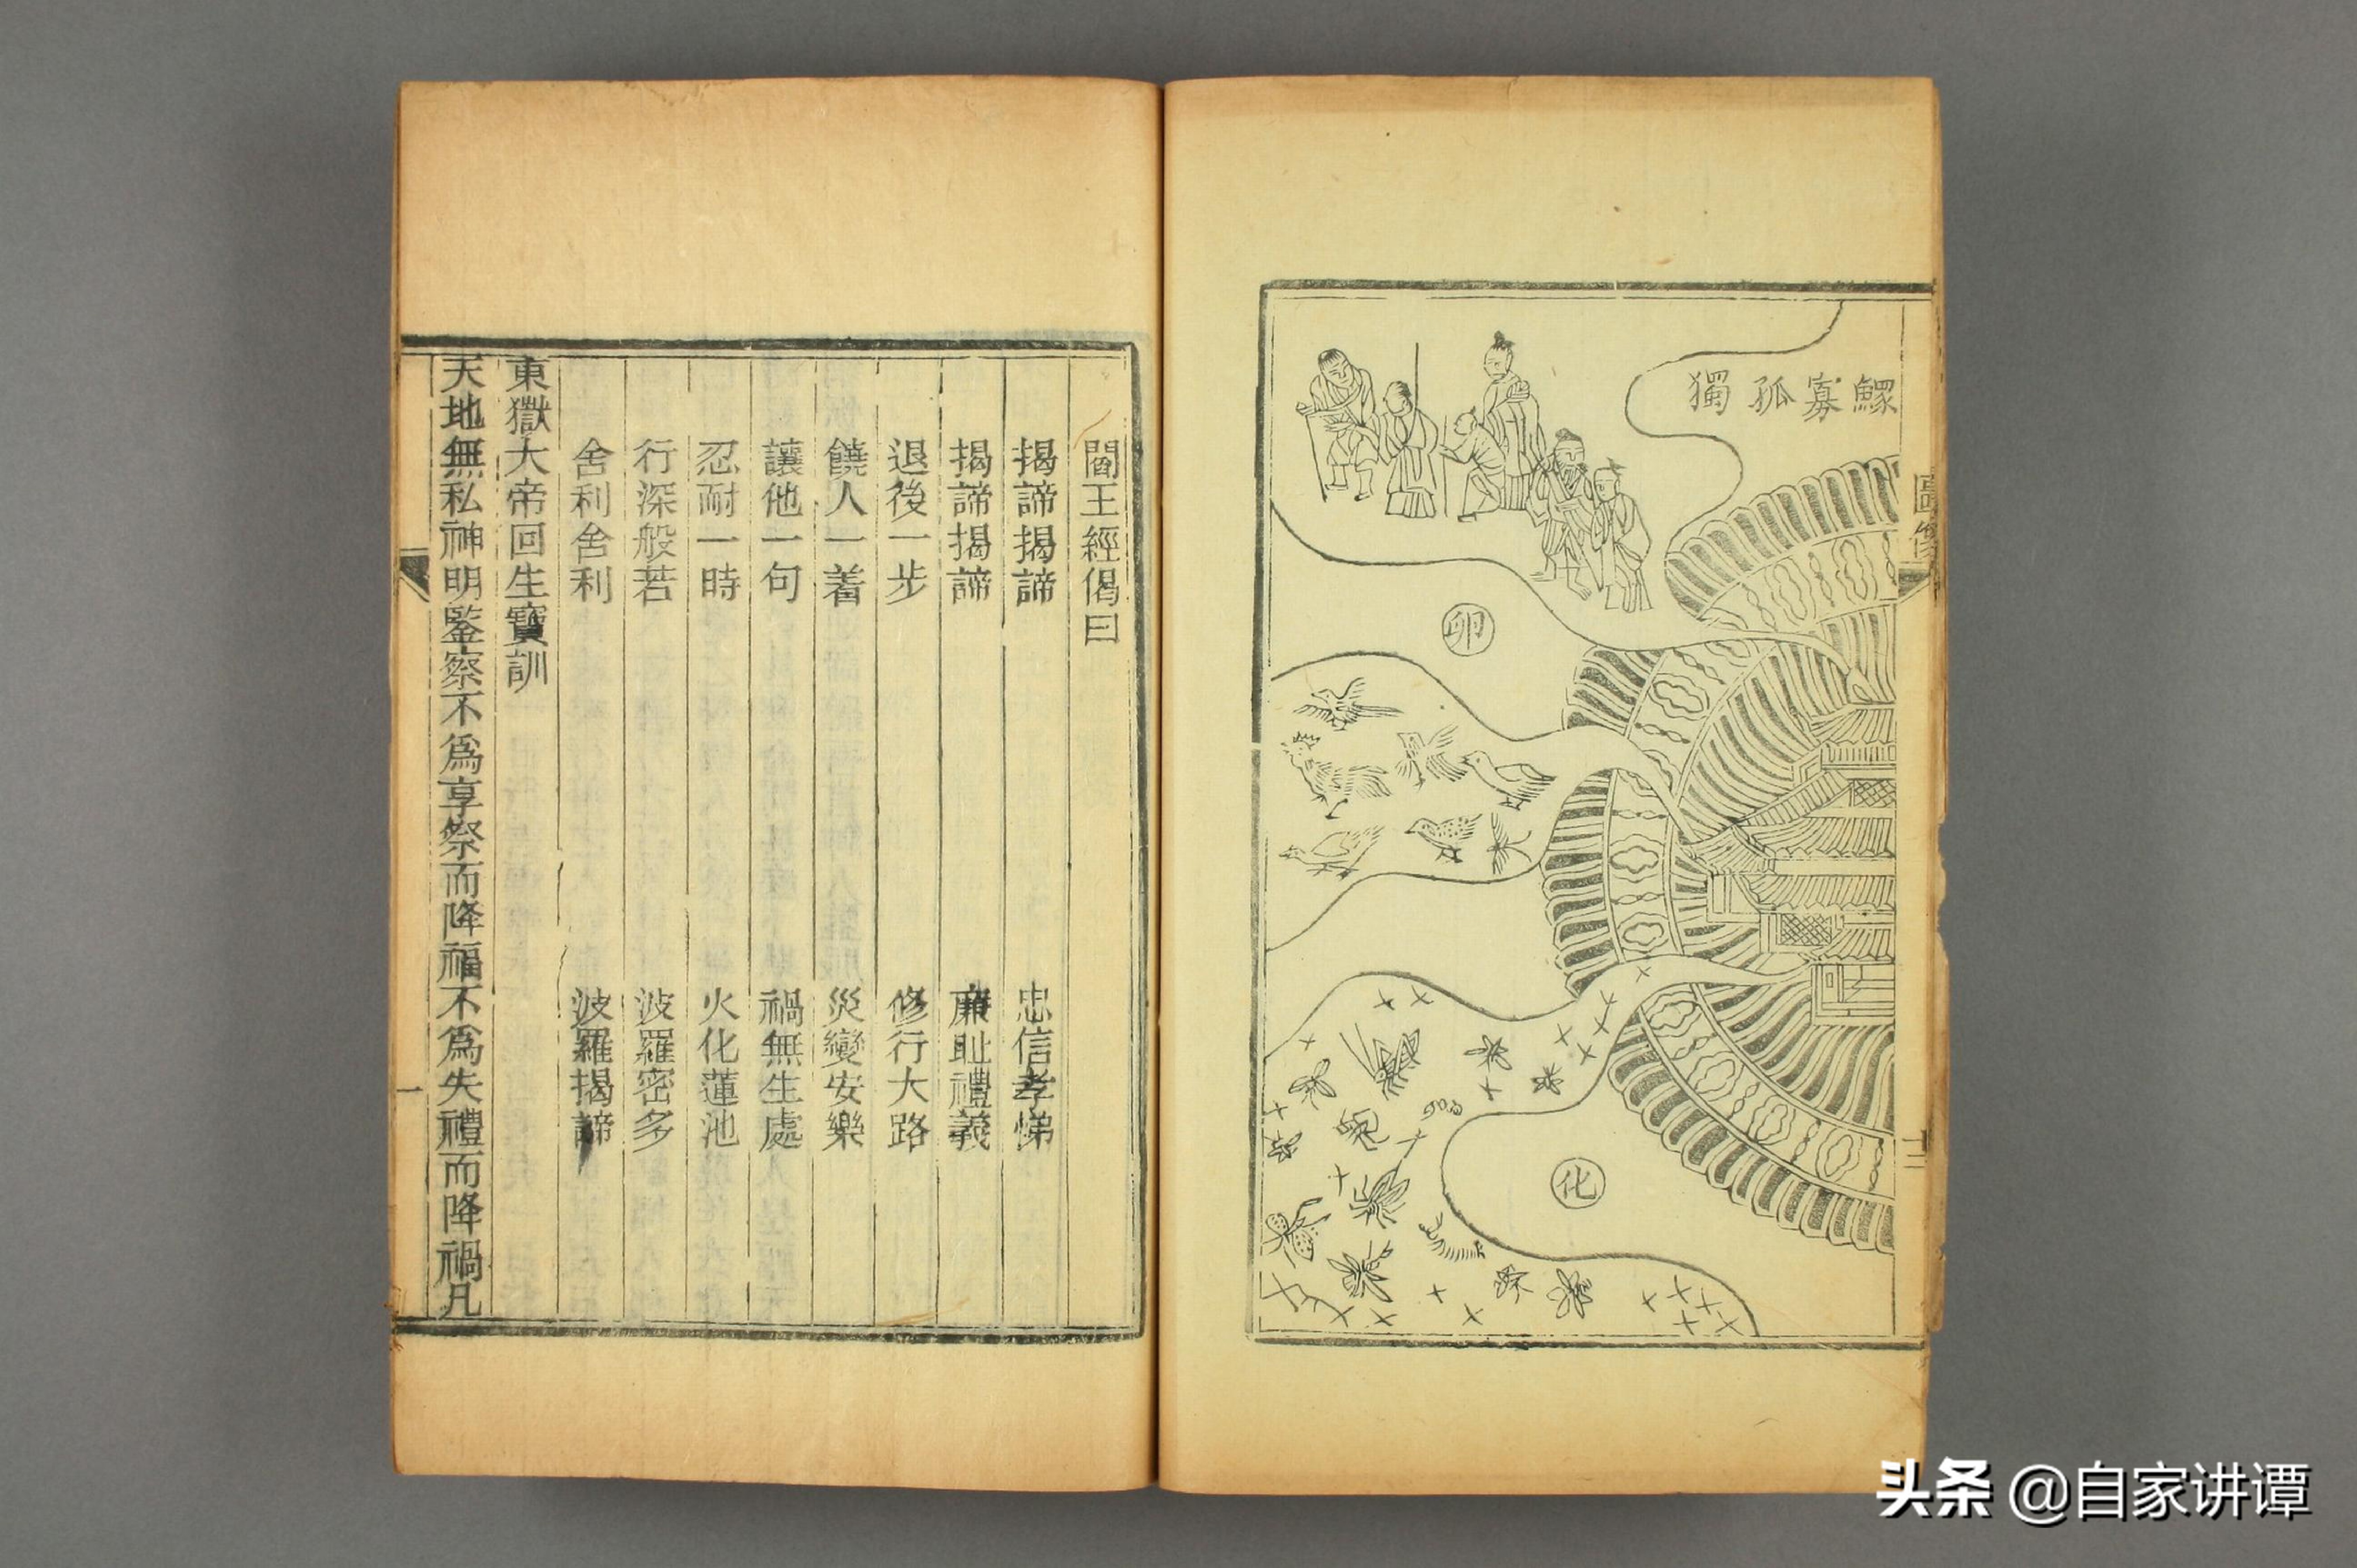 鰥寡孤獨
卵
化
圖像
十三
閻王經偈曰
揭諦揭諦 忠信孝悌
揭諦揭諦 廉耻禮義
退後一步 修行大路
饒人一着 災變安樂
讓他一句 禍無生處
忍耐一時 火化蓮池
行深般若 波羅密多
舍利舍利 波羅揭諦
東獄大帝回生寶訓
天地無私神明鑒察不爲享祭而降福不爲失禮而降禍凡
一
头条 @自家讲谭